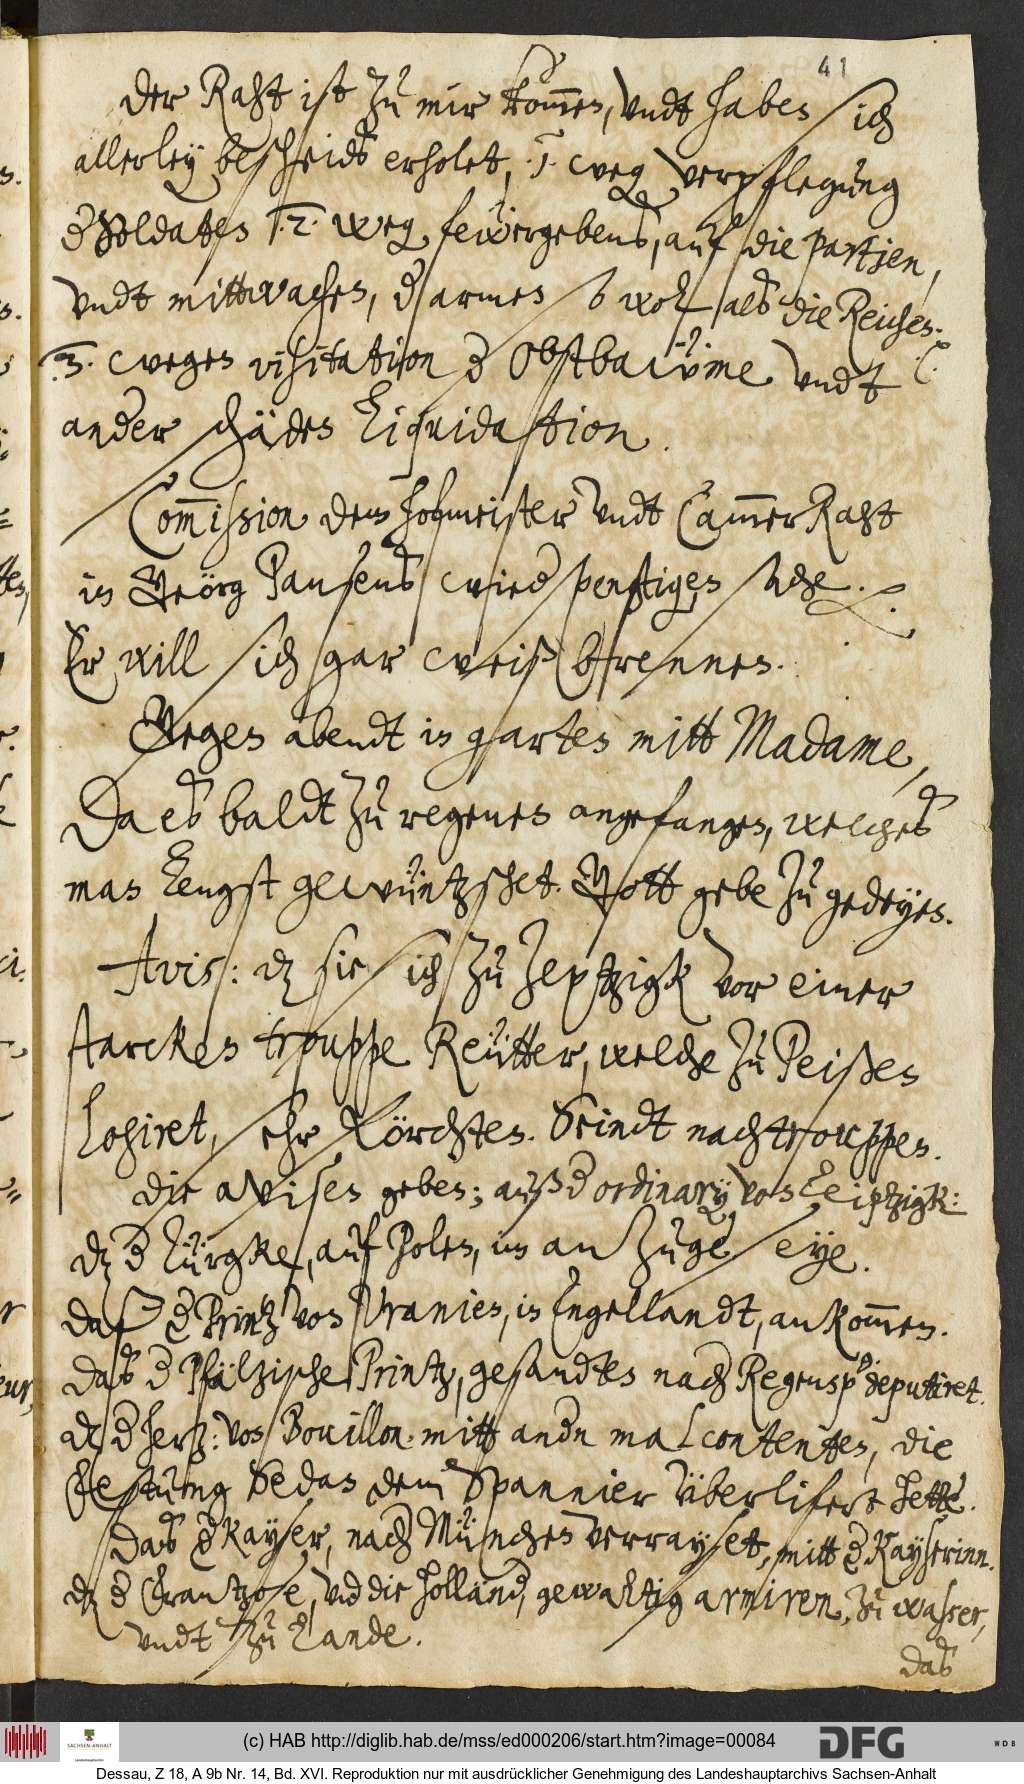 41
Der Raht ist zu mir kom̅en, vndt haben sich
allerley bescheidts erholet, .1. weg verpflegung
d Soldaten .2. weg fewergebens, auf die partien,
vndt mittwachen, d armen so wol als die Reichen.
.3. wegen visitation d Obstbaüme .2. vndt
ander schäden Liquidation.
Com̅ission dem hofmeister vndt Cam̅erRaht
in Geörg Pansens wiedspenstigen sache. .//.
Er will sich gar weiß brennen.
Gegen abendt in garten mitt Madame,
Da es baldt zu regenen angefangen, welches
man lengst gewüntzschet. Gott gebe zu gedeyen.
Avis: dz sie sich zu Zeptzigk vor einer
starcken trouppe Reütter, welche zu Peißen
Losiret, sehr förchten. Seindt nachtrouppen.
Die avisen geben; auß d ordinarij von Leiptzigk:
dz d Türgke, auf Polen, im anzuge seye.
daß d Printz von Vranien, in Engellandt, ankom̅en.
das d Pfältzische Printz, gesandten nach Regenspg deputiret.
dz d hertz: von Bouillon mitt andn malcontenten, die
Festung Sedan dem Spannier vberlifert hette.
das d Kayser, nach München verrayset, mitt d Kayserinn.
dz d Frantzose, vnd die Holländ, gewaltig armiren, zu wasser,
vndt zu Lande.
das
(c) HAB http://diglib.hab.de/mss/ed000206/start.htm?image=00084
SACHSEN-ANHALT
DFG
WDB
Dessau, Z 18, A 9b Nr. 14, Bd. XVI. Reproduktion nur mit ausdrücklicher Genehmigung des Landeshauptarchivs Sachsen-Anhalt